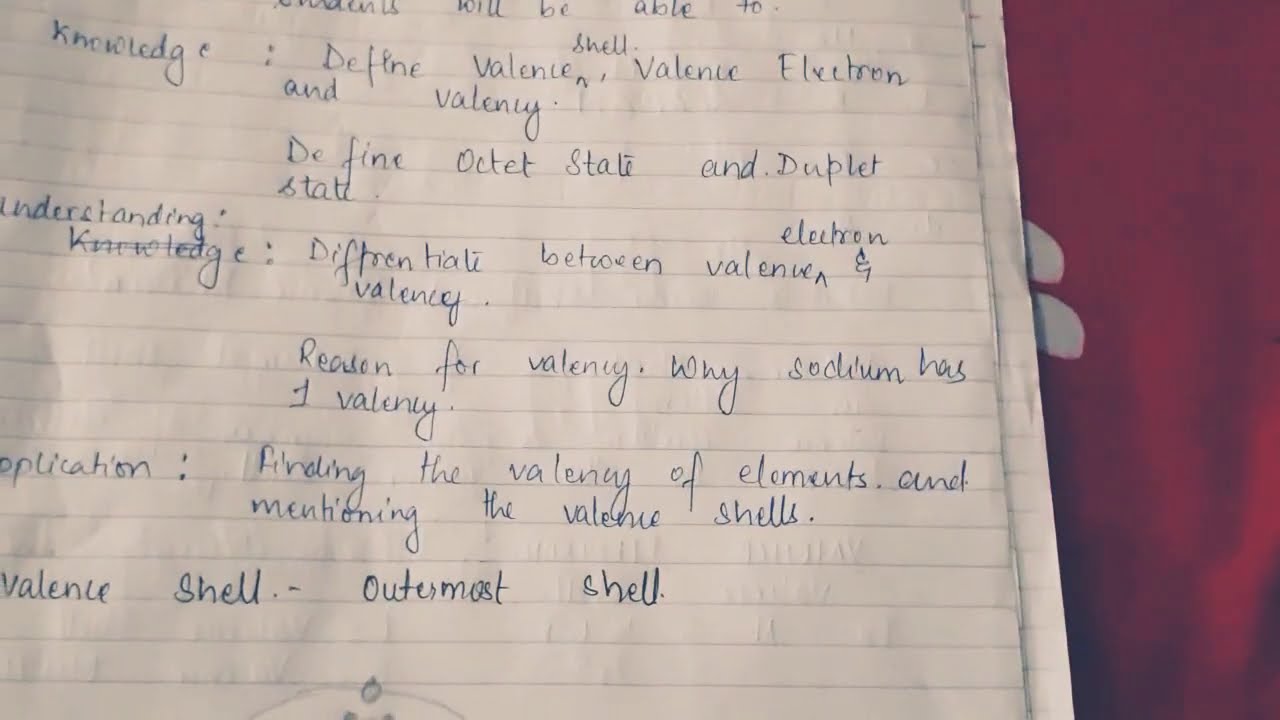 students will be able to.
Knowledge : Define Valence shell., Valence Electron
and valency.
Define Octet State and. Duplet
state.
understanding:
Knowledge : Diffrentiate between valence electron &
valency.
Reason for valency. Why sodium has
1 valency.
pplication : Finding the valency of elements. and
mentioning the valence shells.
Valence Shell.- Outermost shell.